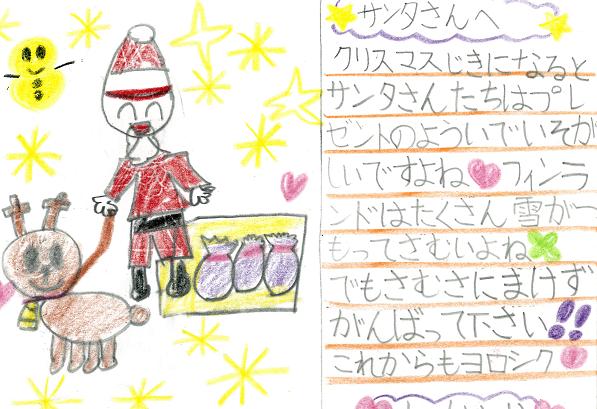 サンタさんへ
クリスマスじきになると
サンタさんたちはプレ
ゼントのよういでいそが
しいですよね
フィンラ
ンドはたくさん雪がつ
もってさむいよね
でもさむさにまけず
がんばって下さい!!
これからもヨロシク